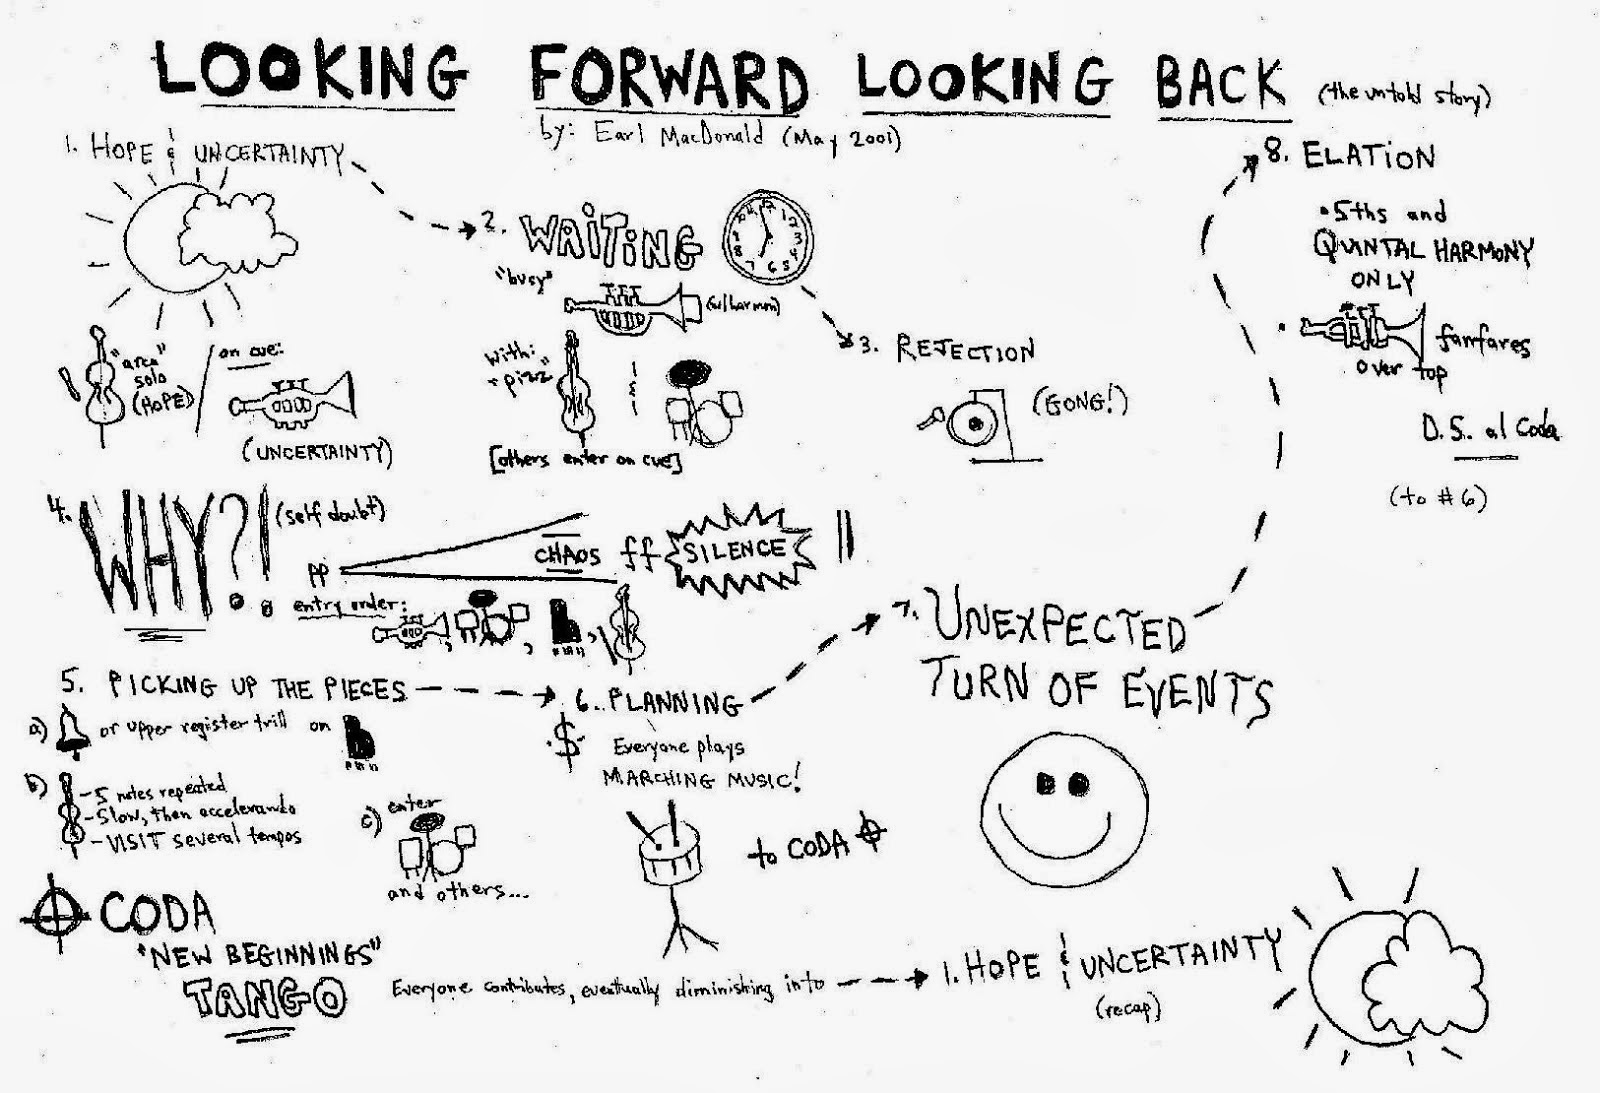 LOOKING FORWARD LOOKING BACK (the untold story)
by: Earl MacDonald (May 2001)
1. HOPE & UNCERTAINTY
"arco"
solo
(HOPE)
on cue:
(UNCERTAINTY)
2. WAITING
12 1 2 3 4 5 6 7 8 9 10 11
"busy"
(w/harmon)
with:
"pizz"
&
[others enter on cue]
3. REJECTION
(GONG!)
4. WHY?! (self doubt)
pp CHAOS ff SILENCE
entry order:
, , ,
5. PICKING UP THE PIECES
a) or upper register trill on
b) - 5 notes repeated
- Slow, then accelerando
- VISIT several tempos
c) enter
and others...
6. PLANNING
Everyone plays
MARCHING MUSIC!
to CODA
7. UNEXPECTED
TURN OF EVENTS
8. ELATION
• 5ths and
QUINTAL HARMONY
ONLY
• fanfares
over top
D.S. al Coda
(to #6)
CODA
"NEW BEGINNINGS"
TANGO
Everyone contributes, eventually diminishing into
1. HOPE & UNCERTAINTY
(recap)